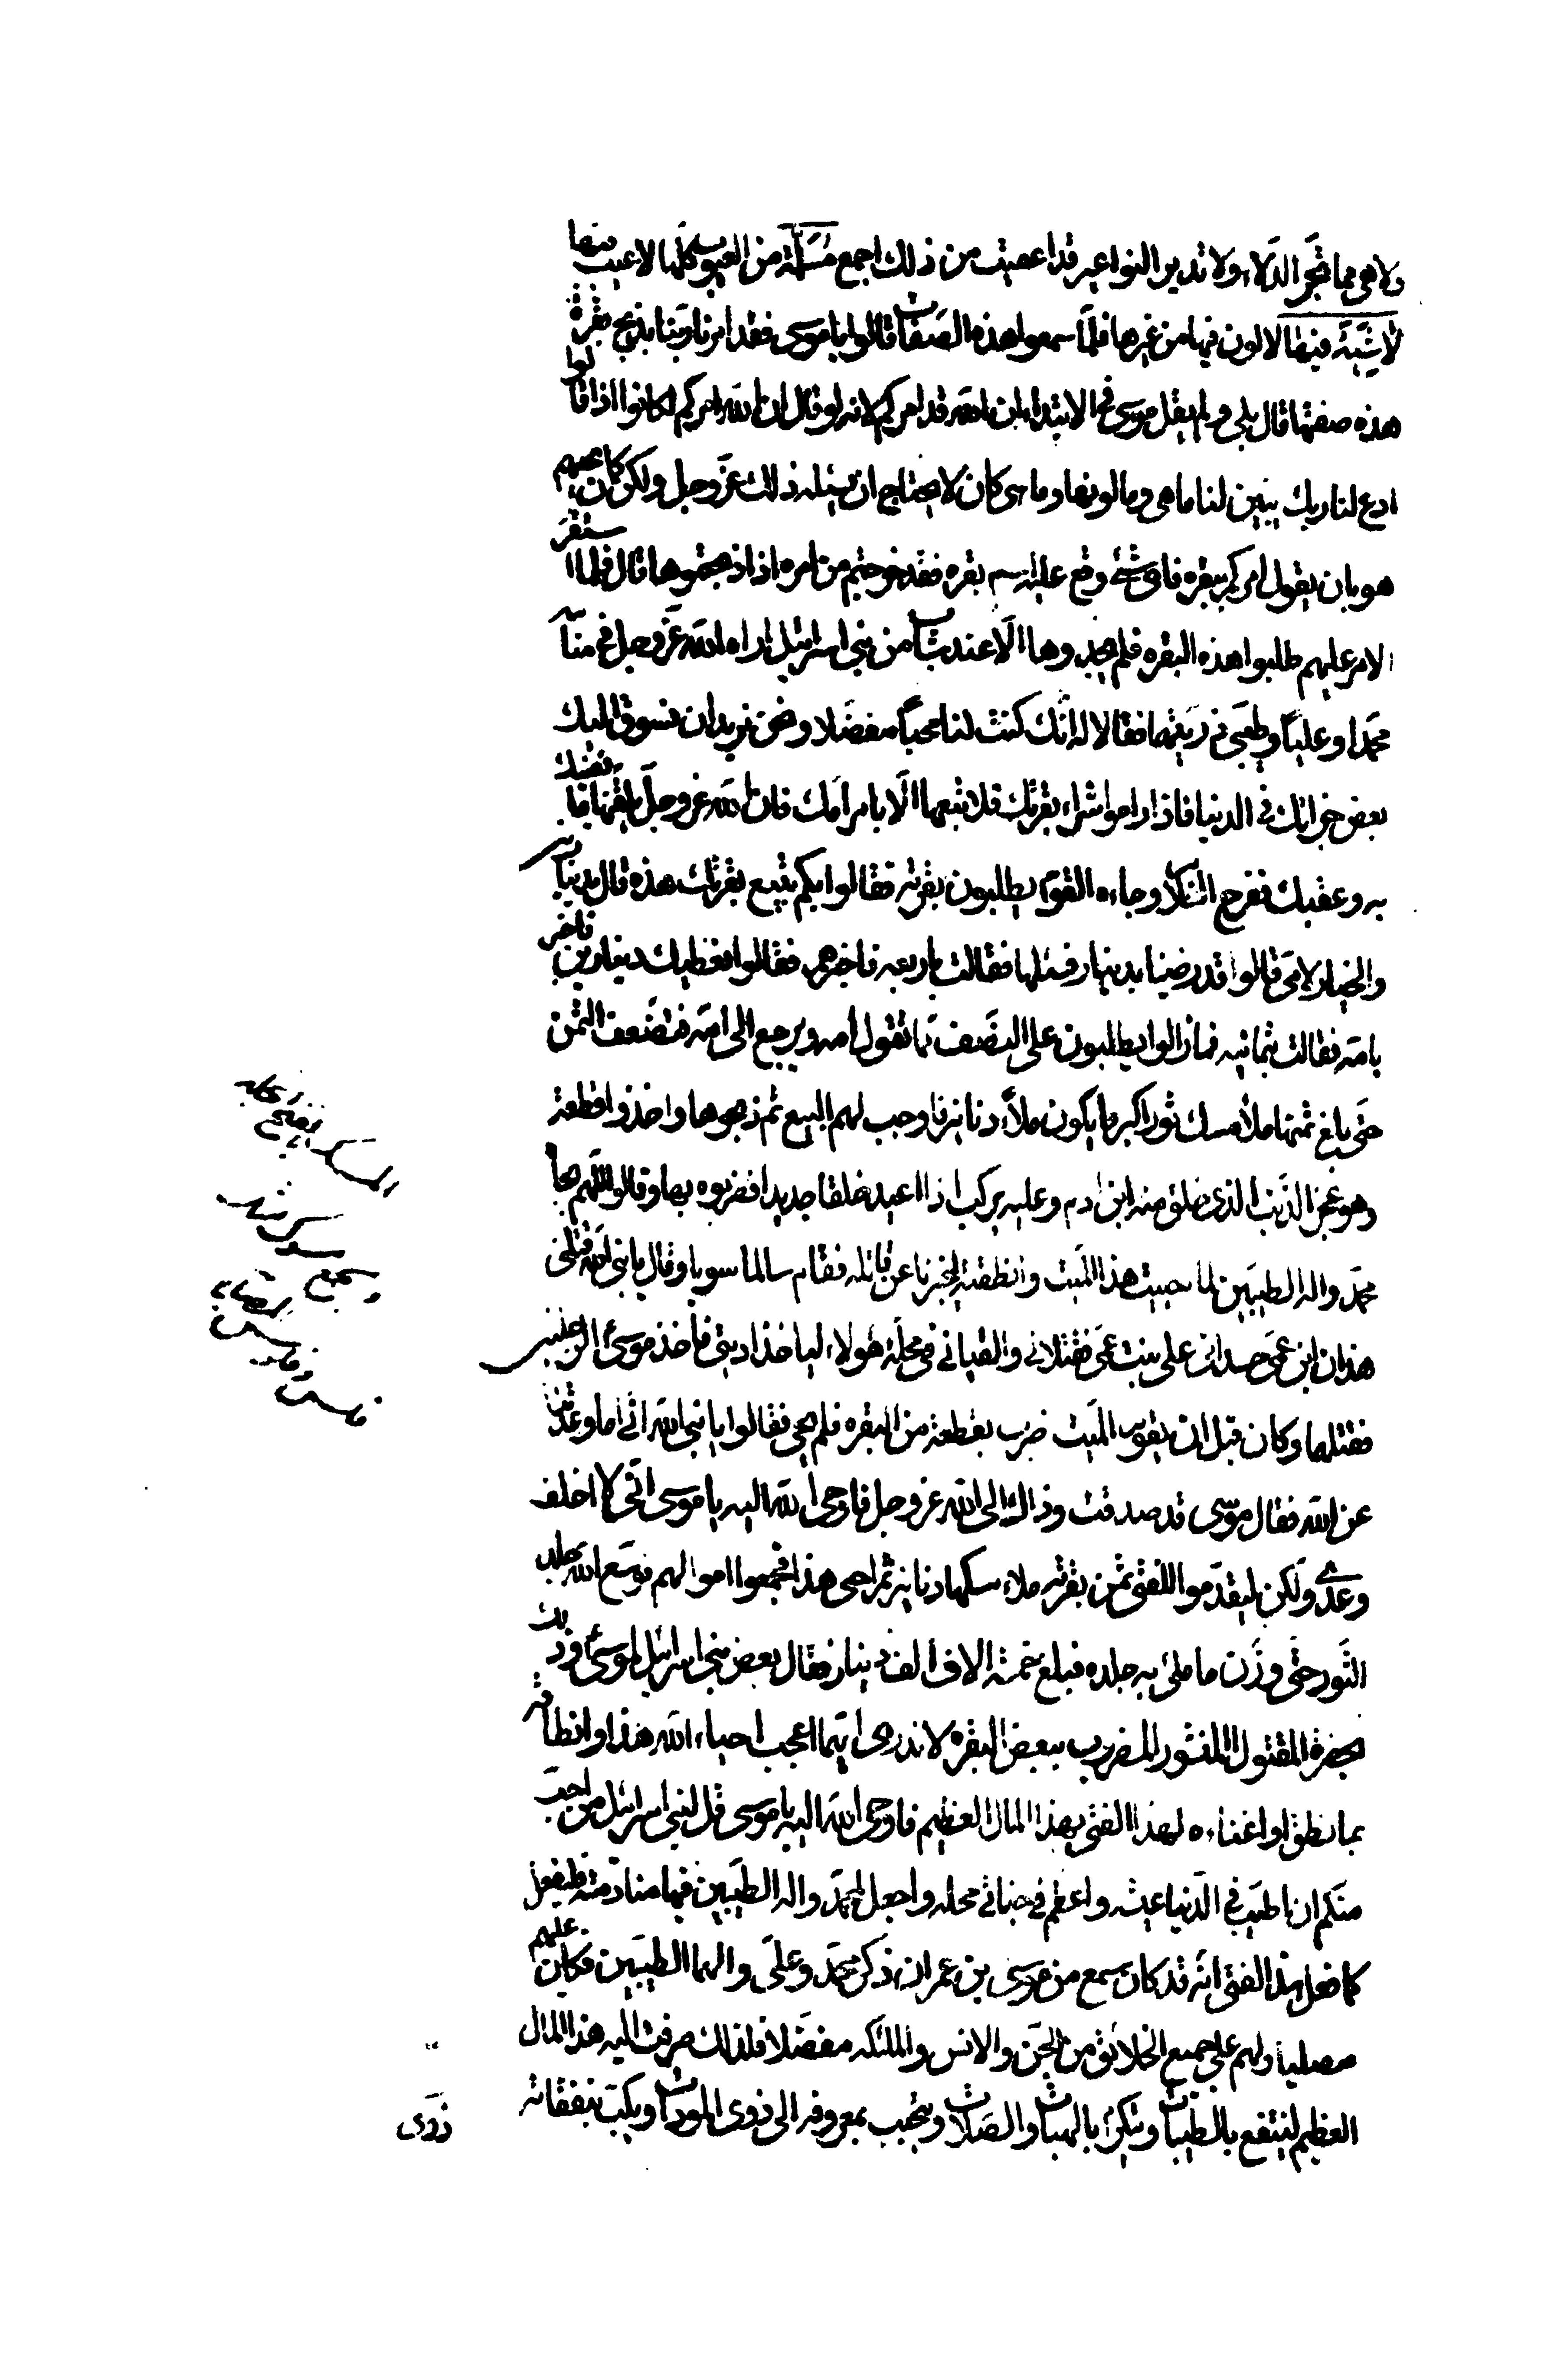 ولا هی مما تجر الدلاء ولا تدیر النواعیر قد اعفیت من ذلك اجمع مُسَلَّمَة من العیوب کلها لا عیب فیها
لَاشِیَةَ فیها لا لون فیها من غیرها فلمّا سمعوا هذه الصفات قالوا یا موسی فقد امرنا ربنا بذبح بقرة
هذه صفتها قال بلی و لم یقل موسی فی الابتداء ان الله قد امرکم لانه لو قال ان الله امرکم لکانوا اذا قالوا
ادع لنا ربك یبین لنا ما هی وما لونها وما هی کان لا یحتاج ان یسئله ذلك عزّ وجل ولکن کان یجیبهم
هو بان یقول امرکم ببقره فای شئ وقع علیه اسم بقره فقد خرجتم من امره اذا ذبحتموها قال فلما استقر
الامر علیهم طلبوا هذه البقره فلم یجدوها الّا عند شاب من بنی اسرائیل اراه الله عزّ وجل فی منامه
محمّدا وعلیّا وطیّبی ذریّتهما فقالا له انّك کنت لنا محبّاً مفضّلا و نحن نرید ان نسوق الیك
بعض جزائك فی الدنیا فاذا راموا شراء بقرتك فلا تبعها الّا بامر امّك فان الله عز وجلّ یلقّنها ما یغنیك
به وعقبك ففرح الغلام وجاءه القوم یطلبون بقرته فقالوا بکم تبیع بقرتك هذه قال بدینارین
والخیار لامّی قالوا قد رضینا بدینار فسئلها فقالت باربعه فاخبرهم فقالوا نعطیك دینارین فاخبر
بامّه فقالت بثمانیه فمازالوا یطلبون علی النصف مما تقول امه ویرجع الی امّه فتضعف الثمن
حتّی بلغ ثمنها ملأ مسك ثور اکبر ما یکون ملاء دنانیر فاوجب لهم البیع ثم ذبحوها واخذوا قطعة
وهو عجز الذنب الذی خلق منه ابن ادم وعلیه یرکب اذا اعید خلقا جدیدا فضربوه بها وقالوا اللّهم بجاه
محمّد واله الطیّبین لما احییت هذا المیّت وانطقته لیخبرنا عن قاتله فقام سالما سویا وقال یا نبی الله قتلنی
هذان ابنا عمّی حسدانی علی بنت عمّی فقتلانی والقیانی فی محلّة هؤلاء لیاخذا دیتی فاخذ موسی الرجلین
فقتلهما وکان قبل ان یقوم المیّت ضرب بقطعة من البقره فلم یحی فقالوا یا نبی الله این ما وعدتنا
عن الله فقال موسی قد صدقت وذاك الی الله عز وجل فاوحی الله الیه یا موسی انّی لا اخلف
وعدی ولکن لیقدّموا للفتی ثمن بقرته ملاء مسکها دنانیر ثم احیی هذا فجمعوا اموالهم فوسّع الله جلد
الثّور حتّی وزن ما ملئ به جلده فبلغ خمسة الاف الف دینار فقال بعض بنی اسرائیل لموسی وذلك
بحضرة المقتول المنشور المضروب ببعض البقره لا ندری ایّهما اعجب احیاء الله هذا وانطاقه
بما نطق او اغناءه لهذا الفتی بهذا المال العظیم فاوحی الله الیه یا موسی قل لبنی اسرائیل من احبّ
منکم ان اطیّب فی الدّنیا عیشه واعظم فی جنانی محلّه واجعل لمحمّد واله الطیّبین فیها منادمته فلیفعل
کما فعل هذا الفتی انّه قد کان سمع من موسی بن عمران ذکر محمّد وعلیّ والهما الطیّبین فکان علیهم
مصلیا ولهم علی جمیع الخلائق من الجنّ والانس والملئکه مفضّلا فلذلك صرفت الیه هذا المال
العظیم لینتفع بالطیّبات ویتکرّم بالهبات والصّلات ویتحبّب بمعروفه الی ذوی المودّات ویکبت بنفقاته
ذوی